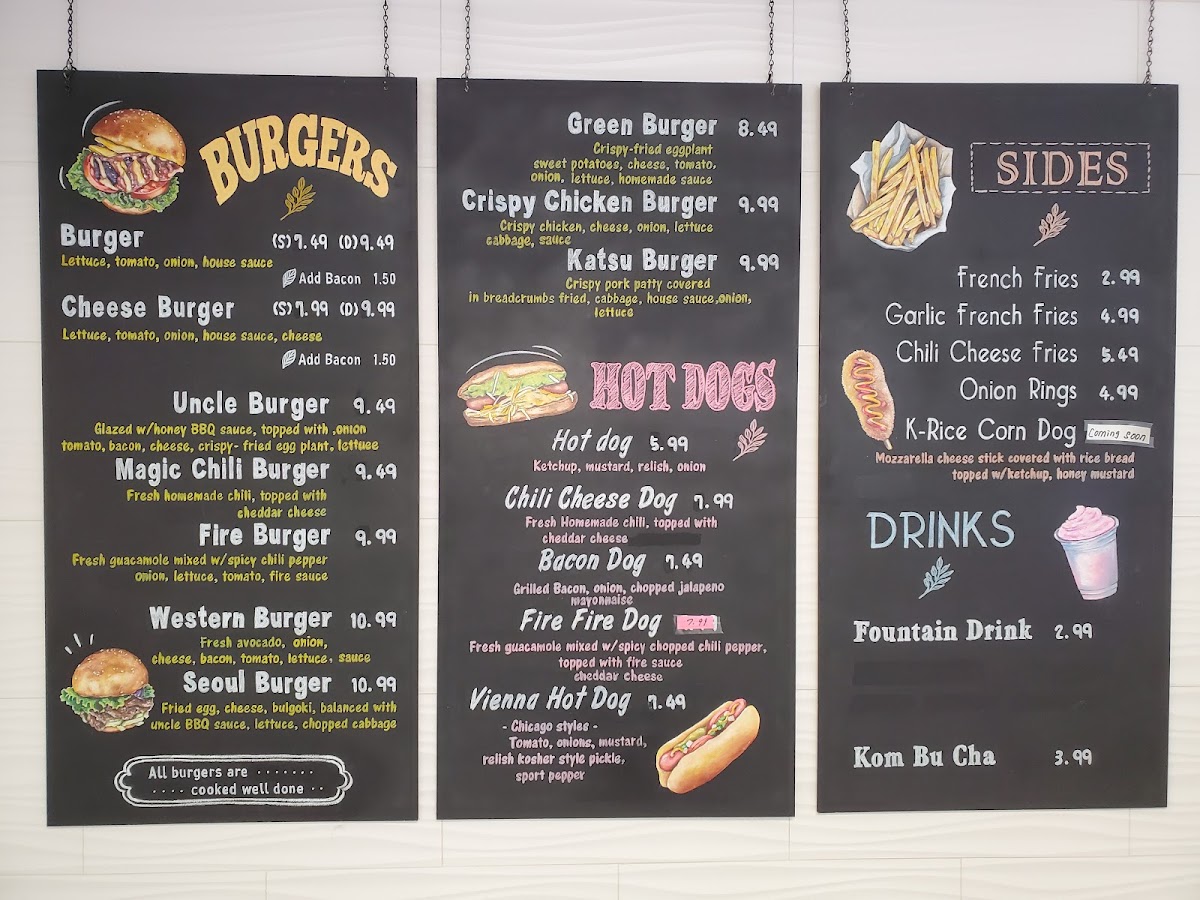 BURGERS
Burger (S)7.49 (D)9.49
Lettuce, tomato, onion, house sauce
Add Bacon 1.50
Cheese Burger (S)7.99 (D)9.99
Lettuce, tomato, onion, house sauce, cheese
Add Bacon 1.50
Uncle Burger 9.49
Glazed w/honey BBQ sauce, topped with ,onion
tomato, bacon, cheese, crispy- fried egg plant, lettuce
Magic Chili Burger 9.49
Fresh homemade chili, topped with
cheddar cheese
Fire Burger 9.99
Fresh guacamole mixed w/spicy chili pepper
onion, lettuce, tomato, fire sauce
Western Burger 10.99
Fresh avocado, onion,
cheese, bacon, tomato, lettuce, sauce
Seoul Burger 10.99
Fried egg, cheese, bulgoki, balanced with
uncle BBQ sauce, lettuce, chopped cabbage
All burgers are .......
.... cooked well done ..
Green Burger 8.49
Crispy-fried eggplant
sweet potatoes, cheese, tomato,
onion, lettuce, homemade sauce
Crispy Chicken Burger 9.99
Crispy chicken, cheese, onion, lettuce
cabbage, sauce
Katsu Burger 9.99
Crispy pork patty covered
in breadcrumbs fried, cabbage, house sauce,onion,
lettuce
HOT DOGS
Hot dog 5.99
Ketchup, mustard, relish, onion
Chili Cheese Dog 7.99
Fresh Homemade chili, topped with
cheddar cheese
Bacon Dog 7.49
Grilled Bacon, onion, chopped jalapeno
mayonnaise
Fire Fire Dog
Fresh guacamole mixed w/spicy chopped chili pepper,
topped with fire sauce
cheddar cheese
Vienna Hot Dog 7.49
- Chicago styles -
Tomato, onions, mustard,
relish kosher style pickle,
sport pepper
SIDES
French Fries 2.99
Garlic French Fries 4.99
Chili Cheese Fries 5.49
Onion Rings 4.99
K-Rice Corn Dog Coming soon
Mozzarella cheese stick covered with rice bread
topped w/ketchup, honey mustard
DRINKS
Fountain Drink 2.99
Kom Bu Cha 3.99